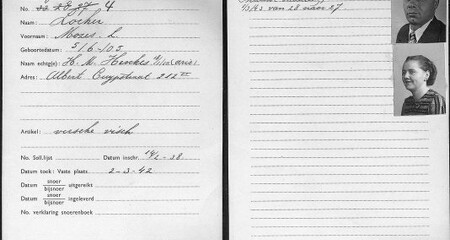 No. 4
Naam: Locher
Voornaam: Mozes. L
Geboortedatum: 5/6-'03
Naam echtg(e): H. M. Henkes
Adres: Albert Cuypstraat 212 III
Artikel: versche visch
No. Soll.lijst Datum inschr. 14/2-38
Datum toek: Vaste plaats 2-3-42
Datum snoer/bijsnoer uitgereikt
Datum snoer/bijsnoer ingeleverd
No. verklaring snoerenboek
van 28 naar 27